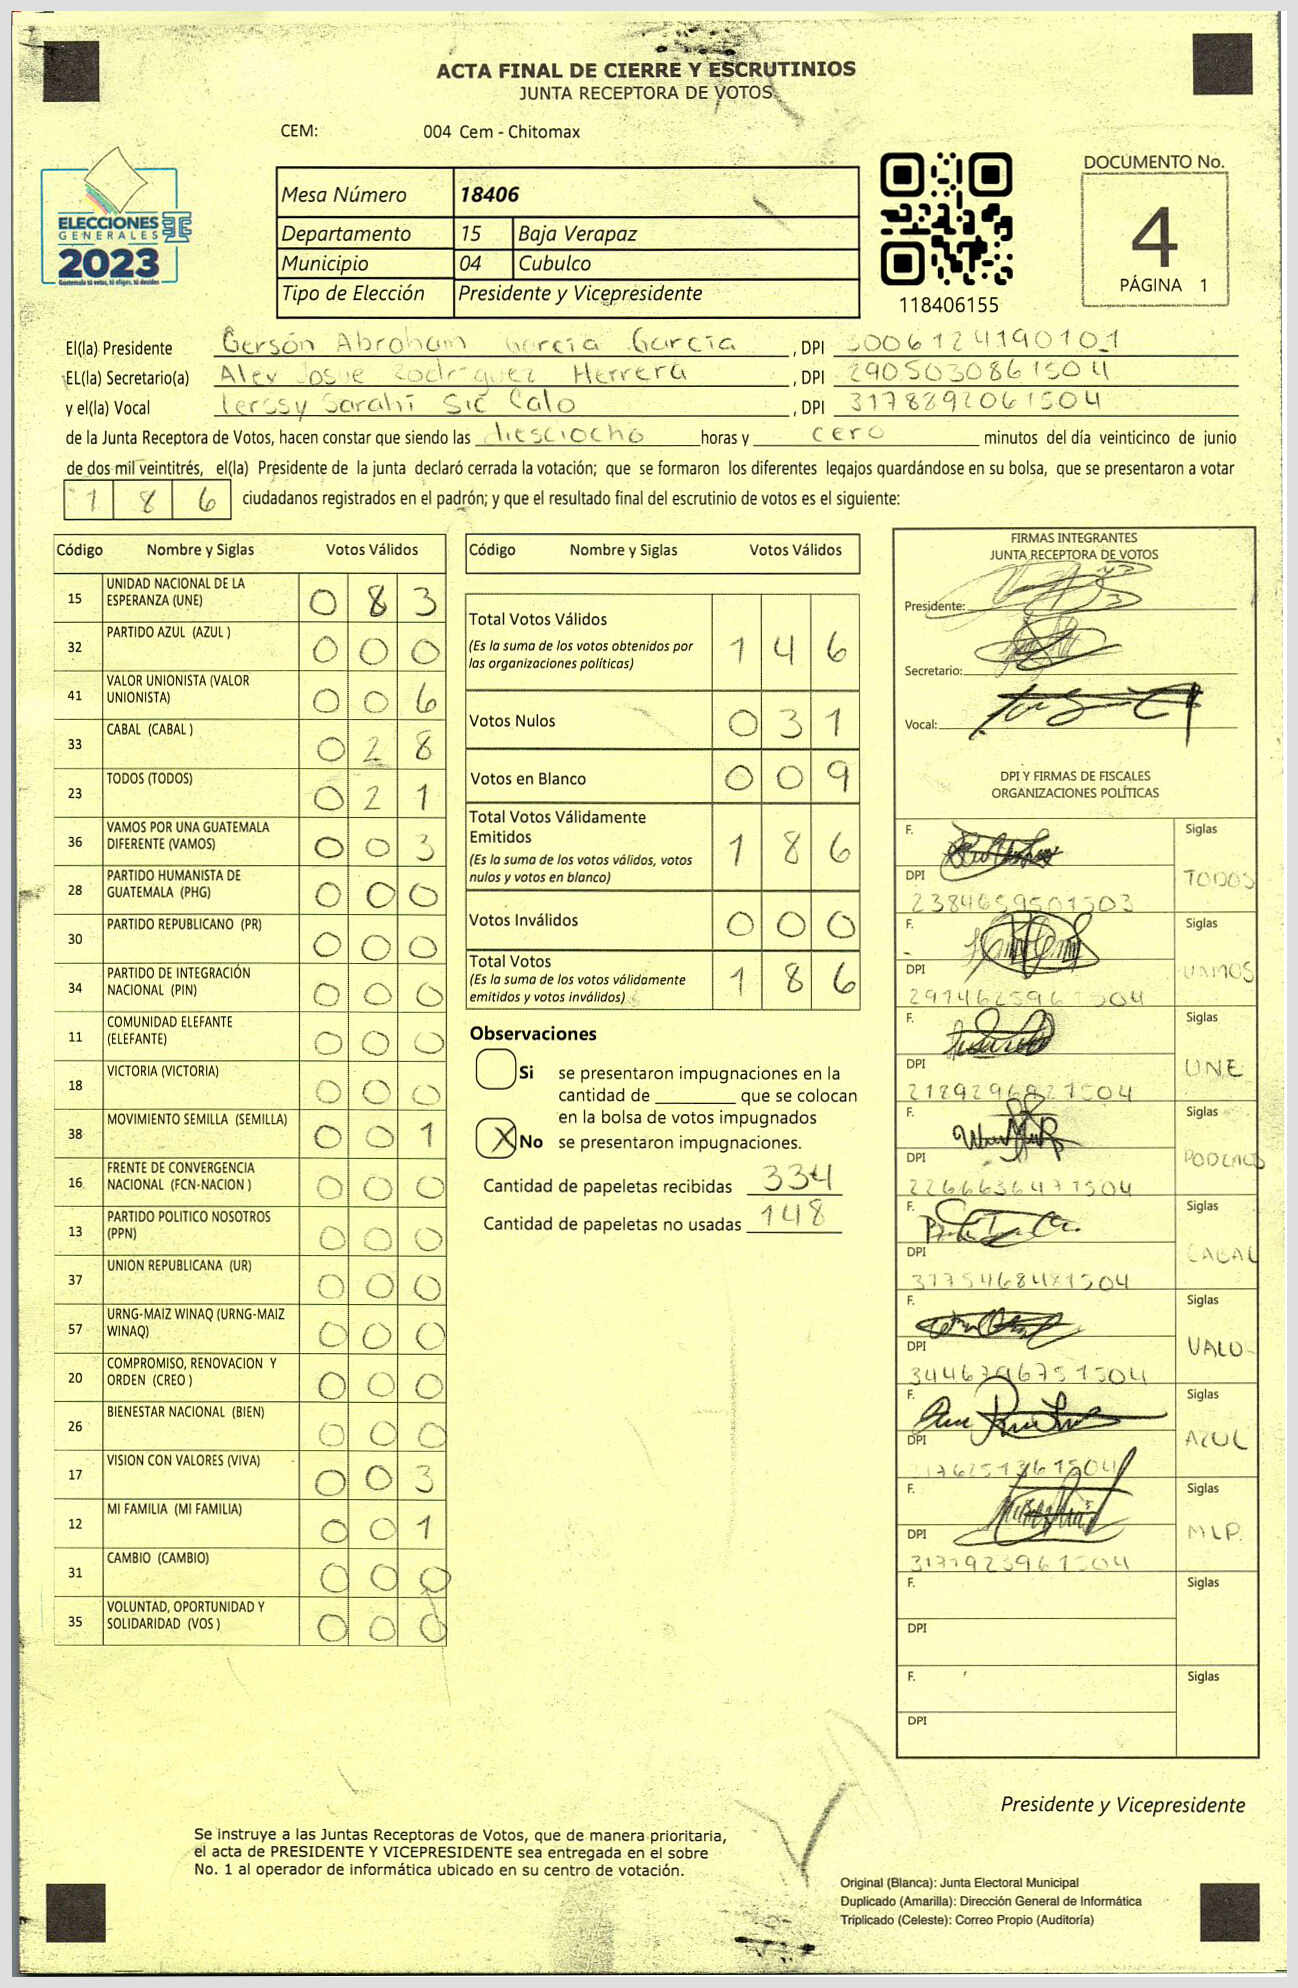 ACTA FINAL DE CIERRE Y ESCRUTINIOS
JUNTA RECEPTORA DE VOTOS
CEM: 004 Cem - Chitomax
DOCUMENTO No.
4
PÁGINA 1
ELECCIONES
GENERALES
2023
Guatemala tú votas, tú eliges, tú decides
Mesa Número 18406
Departamento 15 Baja Verapaz
Municipio 04 Cubulco
Tipo de Elección Presidente y Vicepresidente
118406155
El(la) Presidente Gersón Abraham García García , DPI 3006124190101
EL(la) Secretario(a) Alex Josue Rodríguez Herrera , DPI 2905030861504
y el(la) Vocal Ierssy Sarahí Sic Calo , DPI 3178892061504
de la Junta Receptora de Votos, hacen constar que siendo las diesciocho horas y cero minutos del día veinticinco de junio
de dos mil veintitrés, el(la) Presidente de la junta declaró cerrada la votación; que se formaron los diferentes legajos guardándose en su bolsa, que se presentaron a votar
186 ciudadanos registrados en el padrón; y que el resultado final del escrutinio de votos es el siguiente:
Código Nombre y Siglas Votos Válidos
15 UNIDAD NACIONAL DE LA ESPERANZA (UNE) 083
32 PARTIDO AZUL (AZUL ) 000
41 VALOR UNIONISTA (VALOR UNIONISTA) 006
33 CABAL (CABAL ) 028
23 TODOS (TODOS) 021
36 VAMOS POR UNA GUATEMALA DIFERENTE (VAMOS) 003
28 PARTIDO HUMANISTA DE GUATEMALA (PHG) 000
30 PARTIDO REPUBLICANO (PR) 000
34 PARTIDO DE INTEGRACIÓN NACIONAL (PIN) 000
11 COMUNIDAD ELEFANTE (ELEFANTE) 000
18 VICTORIA (VICTORIA) 000
38 MOVIMIENTO SEMILLA (SEMILLA) 001
16 FRENTE DE CONVERGENCIA NACIONAL (FCN-NACION ) 000
13 PARTIDO POLITICO NOSOTROS (PPN) 000
37 UNION REPUBLICANA (UR) 000
57 URNG-MAIZ WINAQ (URNG-MAIZ WINAQ) 000
20 COMPROMISO, RENOVACION Y ORDEN (CREO ) 000
26 BIENESTAR NACIONAL (BIEN) 000
17 VISION CON VALORES (VIVA) 003
12 MI FAMILIA (MI FAMILIA) 001
31 CAMBIO (CAMBIO) 000
35 VOLUNTAD, OPORTUNIDAD Y SOLIDARIDAD (VOS ) 000
Código Nombre y Siglas Votos Válidos
Total Votos Válidos 146
(Es la suma de los votos obtenidos por
las organizaciones políticas)
Votos Nulos 031
Votos en Blanco 009
Total Votos Válidamente
Emitidos 186
(Es la suma de los votos válidos, votos
nulos y votos en blanco)
Votos Inválidos 000
Total Votos 186
(Es la suma de los votos válidamente
emitidos y votos inválidos)
Observaciones
Si se presentaron impugnaciones en la
cantidad de ________ que se colocan
en la bolsa de votos impugnados
X No se presentaron impugnaciones.
Cantidad de papeletas recibidas 334
Cantidad de papeletas no usadas 148
FIRMAS INTEGRANTES
JUNTA RECEPTORA DE VOTOS
Presidente:
Secretario:
Vocal:
DPI Y FIRMAS DE FISCALES
ORGANIZACIONES POLÍTICAS
F. Siglas
DPI TODOS
2384659501503
F. Siglas
DPI VAMOS
F. Siglas
DPI UNE
F. Siglas
DPI
2266636471504
F. Siglas
DPI CABAL
3175468481504
F. Siglas
DPI VALO
3446796751504
F. Siglas
DPI AZUL
F. Siglas
DPI MLP.
F. Siglas
DPI
F. Siglas
DPI
Presidente y Vicepresidente
Se instruye a las Juntas Receptoras de Votos, que de manera prioritaria,
el acta de PRESIDENTE Y VICEPRESIDENTE sea entregada en el sobre
No. 1 al operador de informática ubicado en su centro de votación.
Original (Blanca): Junta Electoral Municipal
Duplicado (Amarilla): Dirección General de Informática
Triplicado (Celeste): Correo Propio (Auditoría)